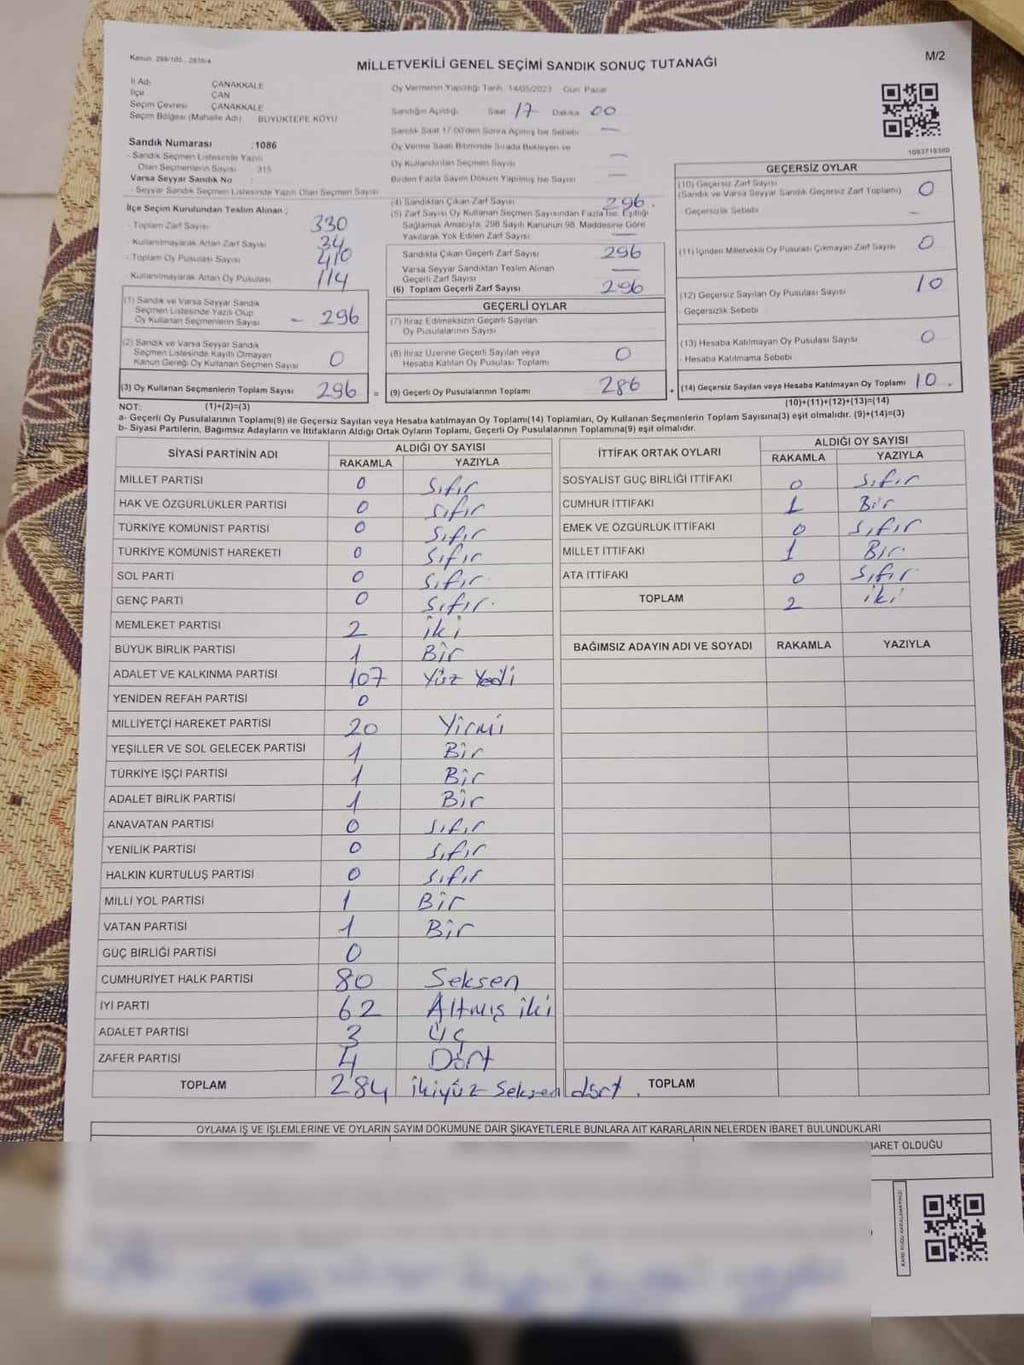 Kanun: 298/105 , 2839/4
MİLLETVEKİLİ GENEL SEÇİMİ SANDIK SONUÇ TUTANAĞI
M/2
İl Adı ÇANAKKALE
İlçe ÇAN
Seçim Çevresi ÇANAKKALE
Seçim Bölgesi (Mahalle Adı) BÜYÜKTEPE KÖYÜ
Sandık Numarası :1086
- Sandık Seçmen Listesinde Yazılı
Olan Seçmenlerin Sayısı 315
Varsa Seyyar Sandık No :
- Seyyar Sandık Seçmen Listesinde Yazılı Olan Seçmen Sayısı
Oy Vermenin Yapıldığı Tarih 14/05/2023 Gün Pazar
Sandığın Açıldığı Saat 17 Dakika 00
Sandık Saat 17:00'den Sonra Açılmış İse Sebebi —
Oy Verme Saati Bitiminde Sırada Bekleyen ve
Oy Kullandırılan Seçmen Sayısı —
Birden Fazla Sayım Döküm Yapılmış İse Sayısı —
İlçe Seçim Kurulundan Teslim Alınan ;
- Toplam Zarf Sayısı 330
- Kullanılmayarak Artan Zarf Sayısı 34
- Toplam Oy Pusulası Sayısı 410
- Kullanılmayarak Artan Oy Pusulası 114
(1) Sandık ve Varsa Seyyar Sandık
Seçmen Listesinde Yazılı Olup
Oy Kullanan Seçmenlerin Sayısı - 296
(2) Sandık ve Varsa Seyyar Sandık
Seçmen Listesinde Kayıtlı Olmayan
Kanun Gereği Oy Kullanan Seçmen Sayısı 0
(3) Oy Kullanan Seçmenlerin Toplam Sayısı 296 =
(1)+(2)=(3)
(4) Sandıktan Çıkan Zarf Sayısı 296 .
(5) Zarf Sayısı Oy Kullanan Seçmen Sayısından Fazla İse, Eşitliği
Sağlamak Amacıyla, 298 Sayılı Kanunun 98. Maddesine Göre
Yakılarak Yok Edilen Zarf Sayısı —
Sandıkta Çıkan Geçerli Zarf Sayısı 296
Varsa Seyyar Sandıktan Teslim Alınan
Geçerli Zarf Sayısı —
(6) Toplam Geçerli Zarf Sayısı 296
GEÇERLİ OYLAR
(7) İtiraz Edilmeksizin Geçerli Sayılan
Oy Pusulalarının Sayısı
(8) İtiraz Üzerine Geçerli Sayılan veya
Hesaba Katılan Oy Pusulası Toplamı 0
(9) Geçerli Oy Pusulalarının Toplamı 286 +
1093718380
GEÇERSİZ OYLAR
(10) Geçersiz Zarf Sayısı
(Sandık ve Varsa Seyyar Sandık Geçersiz Zarf Toplamı) 0
- Geçersizlik Sebebi —
(11) İçinden Milletvekili Oy Pusulası Çıkmayan Zarf Sayısı 0
(12) Geçersiz Sayılan Oy Pusulası Sayısı 10
Geçersizlik Sebebi
(13) Hesaba Katılmayan Oy Pusulası Sayısı 0
- Hesaba Katılmama Sebebi
(14) Geçersiz Sayılan veya Hesaba Katılmayan Oy Toplamı 10 .
(10)+(11)+(12)+(13)=(14)
NOT:
a- Geçerli Oy Pusulalarının Toplamı(9) ile Geçersiz Sayılan veya Hesaba katılmayan Oy Toplamı(14) Toplamları, Oy Kullanan Seçmenlerin Toplam Sayısına(3) eşit olmalıdır. (9)+(14)=(3)
b- Siyasi Partilerin, Bağımsız Adayların ve İttifakların Aldığı Ortak Oyların Toplamı, Geçerli Oy Pusulalarının Toplamına(9) eşit olmalıdır.
SİYASİ PARTİNİN ADI ALDIĞI OY SAYISI
RAKAMLA YAZIYLA
MİLLET PARTİSİ 0 Sıfır
HAK VE ÖZGÜRLÜKLER PARTİSİ 0 Sıfır
TÜRKİYE KOMÜNİST PARTİSİ 0 Sıfır
TÜRKİYE KOMÜNİST HAREKETİ 0 Sıfır
SOL PARTİ 0 Sıfır
GENÇ PARTİ 0 Sıfır.
MEMLEKET PARTİSİ 2 iki
BÜYÜK BİRLİK PARTİSİ 1 Bir
ADALET VE KALKINMA PARTİSİ 107 Yüz Yedi
YENİDEN REFAH PARTİSİ 0
MİLLİYETÇİ HAREKET PARTİSİ 20 Yirmi
YEŞİLLER VE SOL GELECEK PARTİSİ 1 Bir
TÜRKİYE İŞÇİ PARTİSİ 1 Bir
ADALET BİRLİK PARTİSİ 1 Bir
ANAVATAN PARTİSİ 0 Sıfır
YENİLİK PARTİSİ 0 Sıfır
HALKIN KURTULUŞ PARTİSİ 0 Sıfır
MİLLİ YOL PARTİSİ 1 Bir
VATAN PARTİSİ 1 Bir
GÜÇ BİRLİĞİ PARTİSİ 0
CUMHURİYET HALK PARTİSİ 80 Seksen
İYİ PARTİ 62 Altmış iki
ADALET PARTİSİ 3 Üç
ZAFER PARTİSİ 4 Dört
TOPLAM 284 ikiyüz Seksen dört .
İTTİFAK ORTAK OYLARI ALDIĞI OY SAYISI
RAKAMLA YAZIYLA
SOSYALİST GÜÇ BİRLİĞİ İTTİFAKI 0 Sıfır
CUMHUR İTTİFAKI 1 Bir
EMEK VE ÖZGÜRLÜK İTTİFAKI 0 Sıfır
MİLLET İTTİFAKI 1 Bir
ATA İTTİFAKI 0 Sıfır
TOPLAM 2 iki
BAĞIMSIZ ADAYIN ADI VE SOYADI RAKAMLA YAZIYLA
TOPLAM
OYLAMA İŞ VE İŞLEMLERİNE VE OYLARIN SAYIM DÖKÜMÜNE DAİR ŞİKAYETLERLE BUNLARA AİT KARARLARIN NELERDEN İBARET BULUNDUKLARI
İBARET OLDUĞU